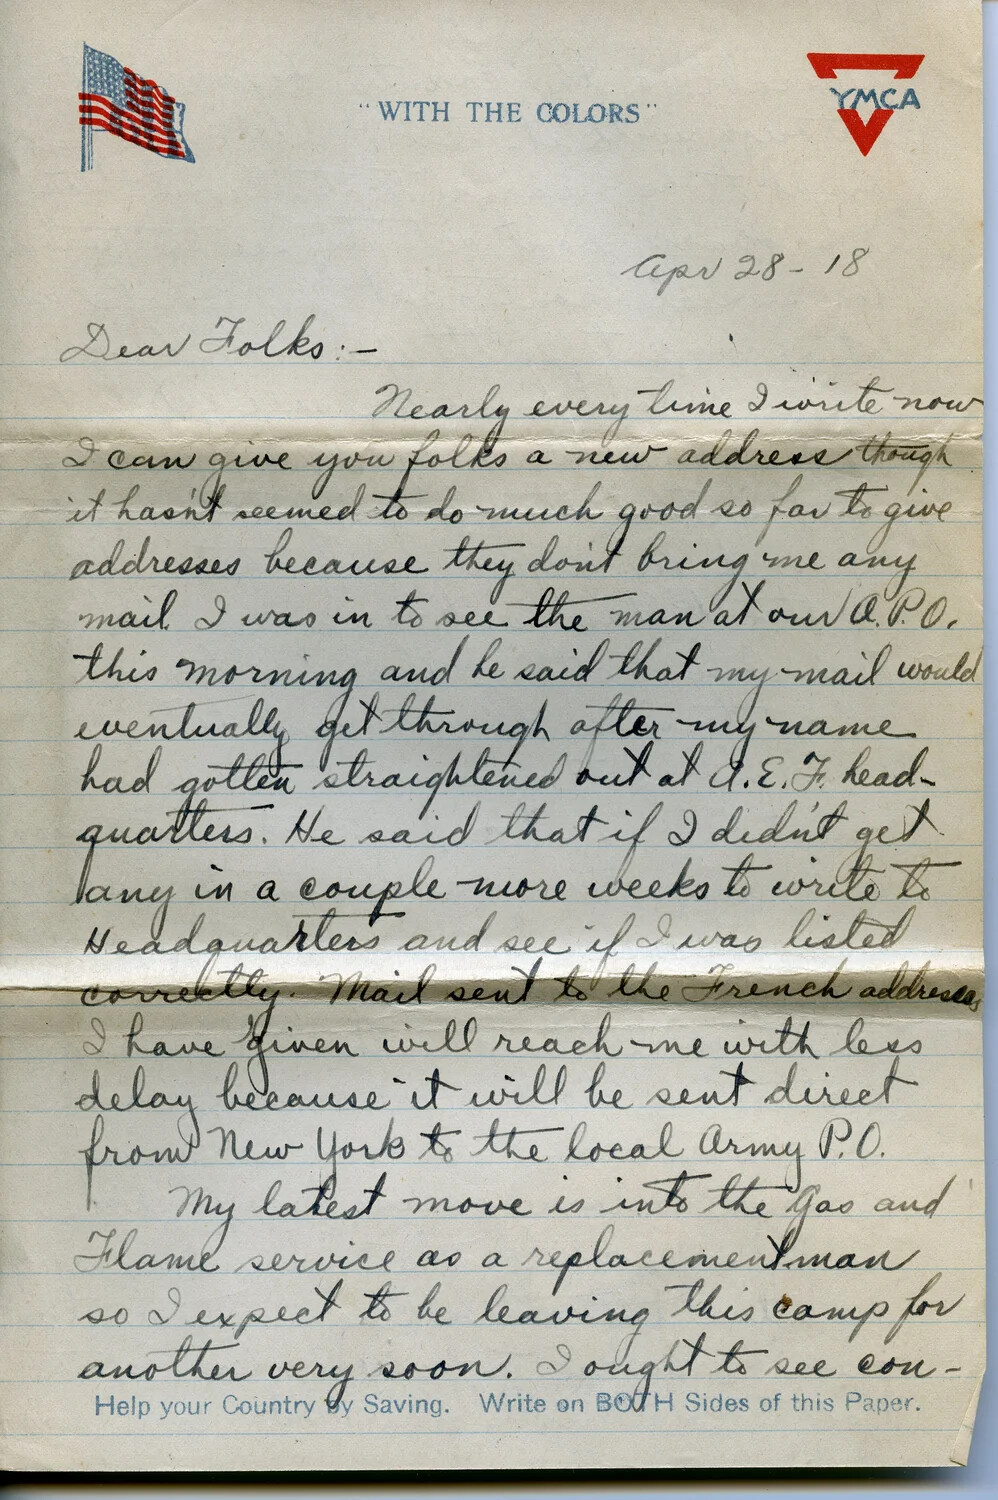 "WITH THE COLORS"
YMCA
Apr 28 - 18
Dear Folks:-
Nearly every time I write now
I can give you folks a new address though
it hasn't seemed to do much good so far to give
addresses because they don't bring me any
mail. I was in to see the man at our A.P.O.
this morning and he said that my mail would
eventually get through after my name
had gotten straightened out at A.E.F. head-
quarters. He said that if I didn't get
any in a couple more weeks to write to
Headquarters and see if I was listed
correctly. Mail sent to the French addresses
I have given will reach me with less
delay because it will be sent direct
from New York to the local Army P.O.
My latest move is into the Gas and
Flame service as a replacement man
so I expect to be leaving this camp for
another very soon. I ought to see con-
Help your Country by Saving. Write on BOTH Sides of this Paper.